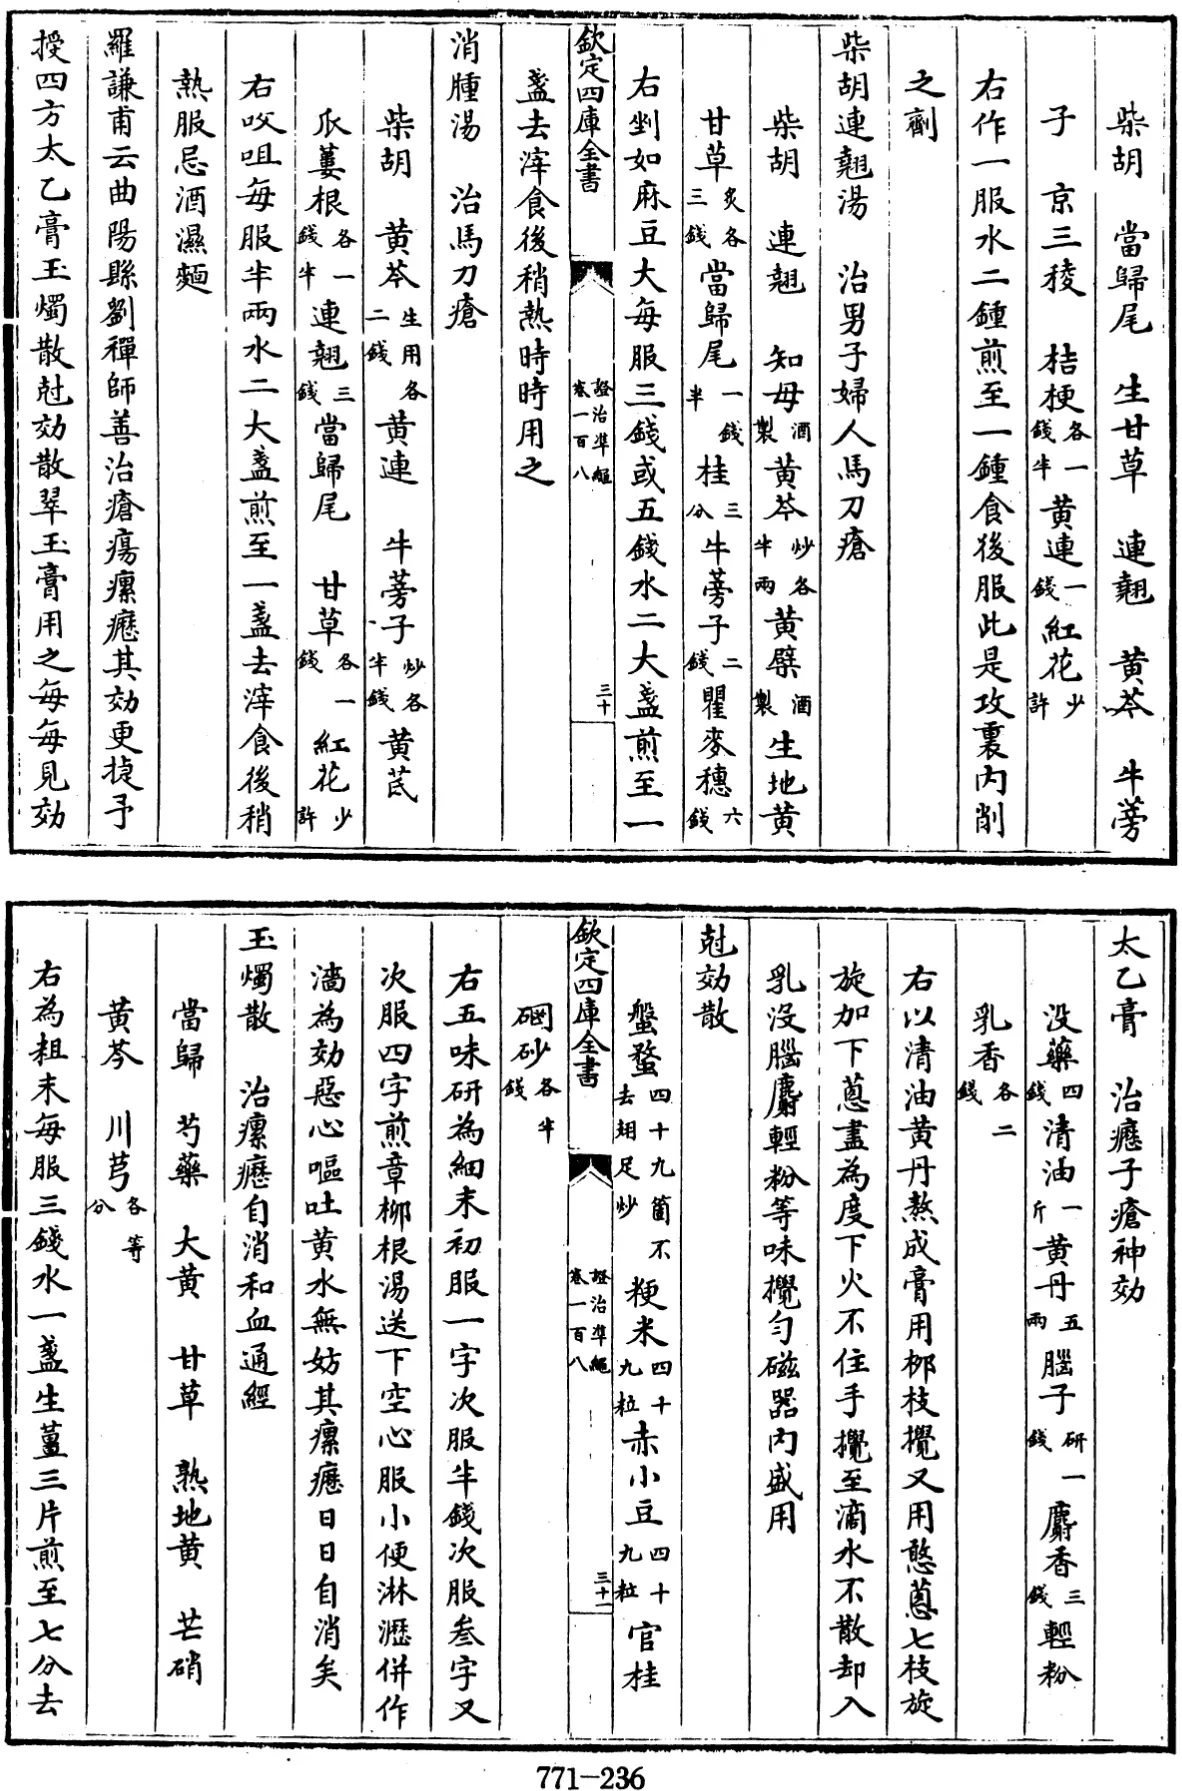 柴胡　當歸尾　生甘草　連翹　黄芩　牛蒡
子　京三稜　桔梗各一錢半黄連一錢紅花少許
右作一服水二鍾煎至一鍾食後服此是攻裏内削
之劑
柴胡連翹湯　治男子婦人馬刀瘡
柴胡　連翹　知母酒製黄芩炒各半兩黄檗酒製生地黄
甘草炙各三錢當歸尾一錢半桂三分牛蒡子二錢瞿麥穗六錢
右剉如麻豆大每服三錢或五錢水二大盞煎至一
欽定四庫全書　證治準繩卷一百八　三十
盞去滓食後稍熱時時用之
消腫湯　治馬刀瘡
柴胡　黄芩生用各二錢黄連　牛蒡子炒各半錢黄芪
瓜蔞根各一錢半連翹三錢當歸尾　甘草各一錢紅花少許
右㕮咀每服半兩水二大盞煎至一盞去滓食後稍
熱服忌酒濕麵
羅謙甫云曲陽縣劉禪師善治瘡瘍瘰癧其効更捷予
授四方太乙膏玉燭散尅効散翠玉膏用之每每見効
太乙膏　治癧子瘡神効
没藥四錢清油一斤黄丹五兩腦子研一錢麝香三錢輕粉
乳香各二錢
右以清油黄丹熬成膏用栁枝攪又用憨蔥七枝旋
旋加下蔥盡為度下火不住手攪至滴水不散却入
乳没腦麝輕粉等味攪匀磁器内盛用
尅効散
盤蝥四十九箇不去翅足炒粳米四十九粒赤小豆四十九粒官桂
硇砂各半錢
右五味研為細末初服一字次服半錢次服叁字又
次服四字煎章栁根湯送下空心服小便淋瀝併作
濇為効惡心嘔吐黄水無妨其瘰癧日日自消矣
玉燭散　治瘰癧自消和血通經
當歸　芍藥　大黄　甘草　熟地黄　芒硝
黄芩　川芎各等分
右為粗末每服三錢水一盞生薑三片煎至七分去
欽定四庫全書　證治準繩卷一百八　三十一
771—236